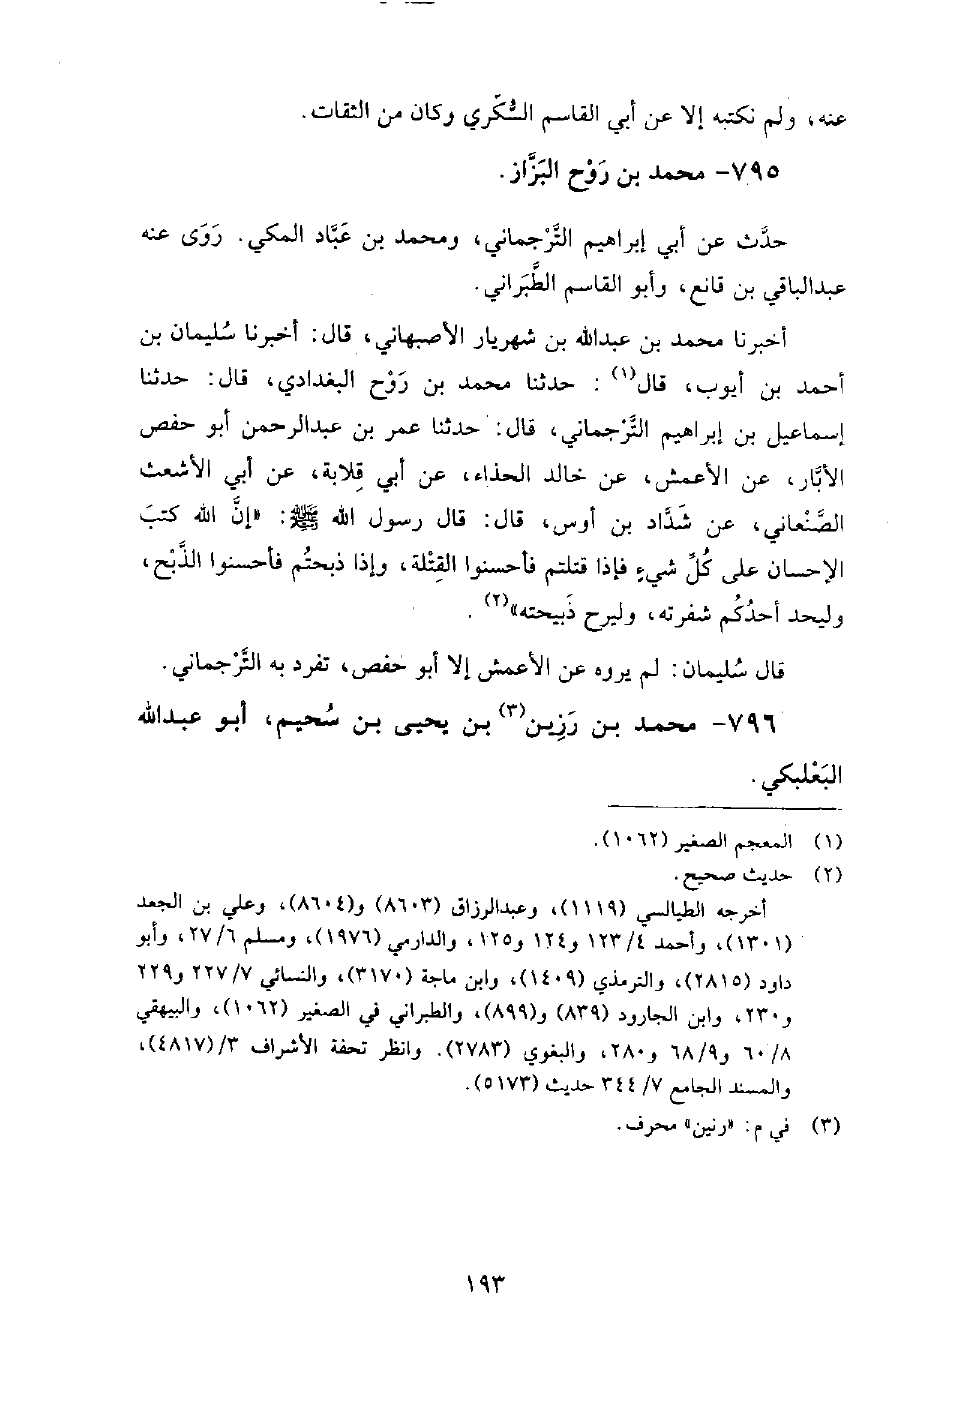 عنه، ولم نكتبه إلا عن أبي القاسم السُّكَّري وكان من الثقات.
٧٩٥- محمد بن رَوْح البَزَّاز.
حدَّث عن أبي إبراهيم التَّرْجماني، ومحمد بن عَبَّاد المكي. رَوَى عنه
عبدالباقي بن قانع، وأبو القاسم الطَّبَراني.
أخبرنا محمد بن عبدالله بن شهريار الأصبهاني، قال: أخبرنا سُليمان بن
أحمد بن أيوب، قال(١): حدثنا محمد بن رَوْح البغدادي، قال: حدثنا
إسماعيل بن إبراهيم التَّرْجماني، قال: حدثنا عمر بن عبدالرحمن أبو حفص
الأبَّار، عن الأعمش، عن خالد الحذاء، عن أبي قِلابة، عن أبي الأشعث
الصَّنْعاني، عن شَدَّاد بن أوس، قال: قال رسول الله ﷺ: «إنَّ الله كتبَ
الإحسان على كُلِّ شيءٍ فإذا قتلتم فأحسنوا القِتْلة، وإذا ذبحتُم فأحسنوا الذَّبْح،
وليحد أحدُكُم شفرته، وليرح ذَبيحته»(٢).
قال سُليمان: لم يروه عن الأعمش إلا أبو حفص، تفرد به التَّرْجماني.
٧٩٦- محمد بن رَزِين(٣) بن يحيى بن سُحيم، أبو عبدالله
البَعْلبكي.
(١) المعجم الصغير (١٠٦٢).
(٢) حديث صحيح.
أخرجه الطيالسي (١١١٩)، وعبدالرزاق (٨٦٠٣) و(٨٦٠٤)، وعلي بن الجعد
(١٣٠١)، وأحمد ٤/ ١٢٣ و١٢٤ و١٢٥، والدارمي (١٩٧٦)، ومسلم ٦/ ٢٧، وأبو
داود (٢٨١٥)، والترمذي (١٤٠٩)، وابن ماجة (٣١٧٠)، والنسائي ٧/ ٢٢٧ و٢٢٩
و٢٣٠، وابن الجارود (٨٣٩) و(٨٩٩)، والطبراني في الصغير (١٠٦٢)، والبيهقي
٨/ ٦٠ و٩/ ٦٨ و٢٨٠، والبغوي (٢٧٨٣). وانظر تحفة الأشراف ٣/(٤٨١٧)،
والمسند الجامع ٧/ ٣٤٤ حديث (٥١٧٣).
(٣) في م: «رنين» محرف.
١٩٣